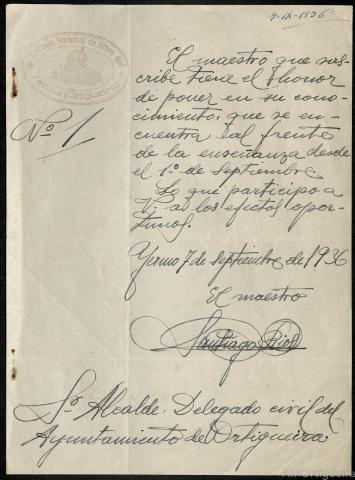 7-IX-1936
Escuela Nacional de Niños de
Yermo (Ortigueira)
Nº 1
El maestro que sus-
cribe tiene el honor
de poner en su cono-
cimiento, que se en-
cuentra al frente
de la enseñanza desde
el 1º de septiembre.
Lo que participo a
V. a los efectos opor-
tunos.
Yermo 7 de septiembre de 1936
El maestro
Santiago Rios
Sr. Alcalde. Delegado civil del
Ayuntamiento de Ortigueira